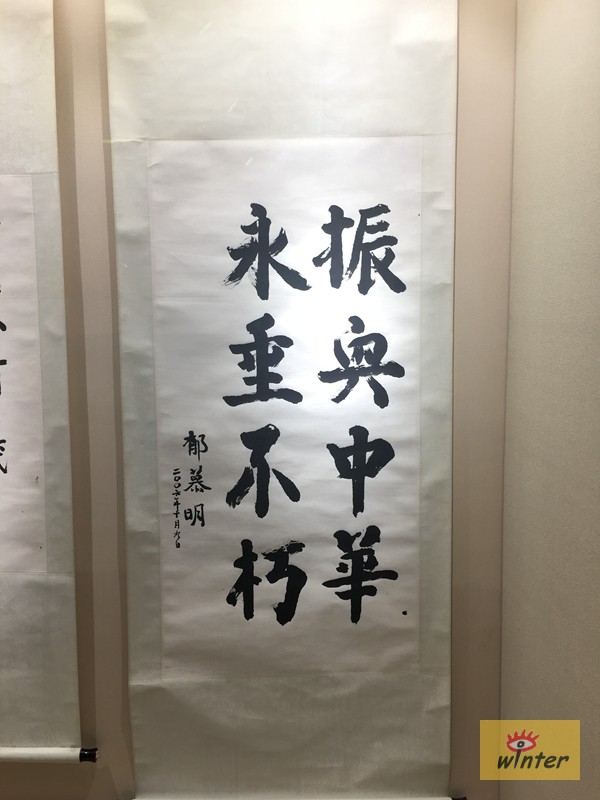 振興中華
永垂不朽
郁慕明
二〇〇六年十月九日
winter